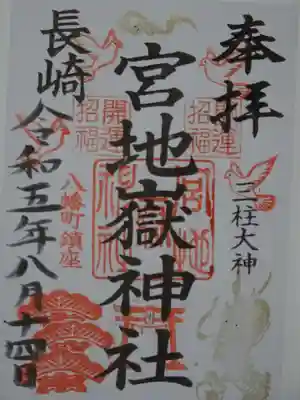 奉拝
開運
招福
三柱大神
宮地嶽神社
開運
招福
八幡町鎮座
長崎
令和五年八月十四日